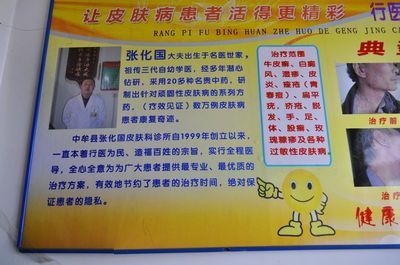 让皮肤病患者活得更精彩
行医
RANG PI FU BING HUAN ZHE HUO DE GENG JING C
典
张化国大夫出生于名医世家,
祖传三代自幼学医,经多年潜心
钻研,采用20多种名贵中药,研
制出针对顽固性皮肤病的系列方
药,(疗效见证)数万例皮肤病
患者康复奇迹。
中牟县张化国皮肤科诊所自1999年创立以来,
一直本着行医为民、造福百姓的宗旨,实行全程医
导,全心全意为为广大患者提供最专业、最优质的
治疗方案,有效地节约了患者的治疗时间,绝对保
证患者的隐私。
治疗范围
牛皮癣、白癜
风、湿疹、皮
炎、痤疮(青
春痘)、扁平
疣、疥疮、脱
发、手、足、
体、股癣、玫
瑰糠疹及各种
过敏性皮肤病。
治疗前
治
健康